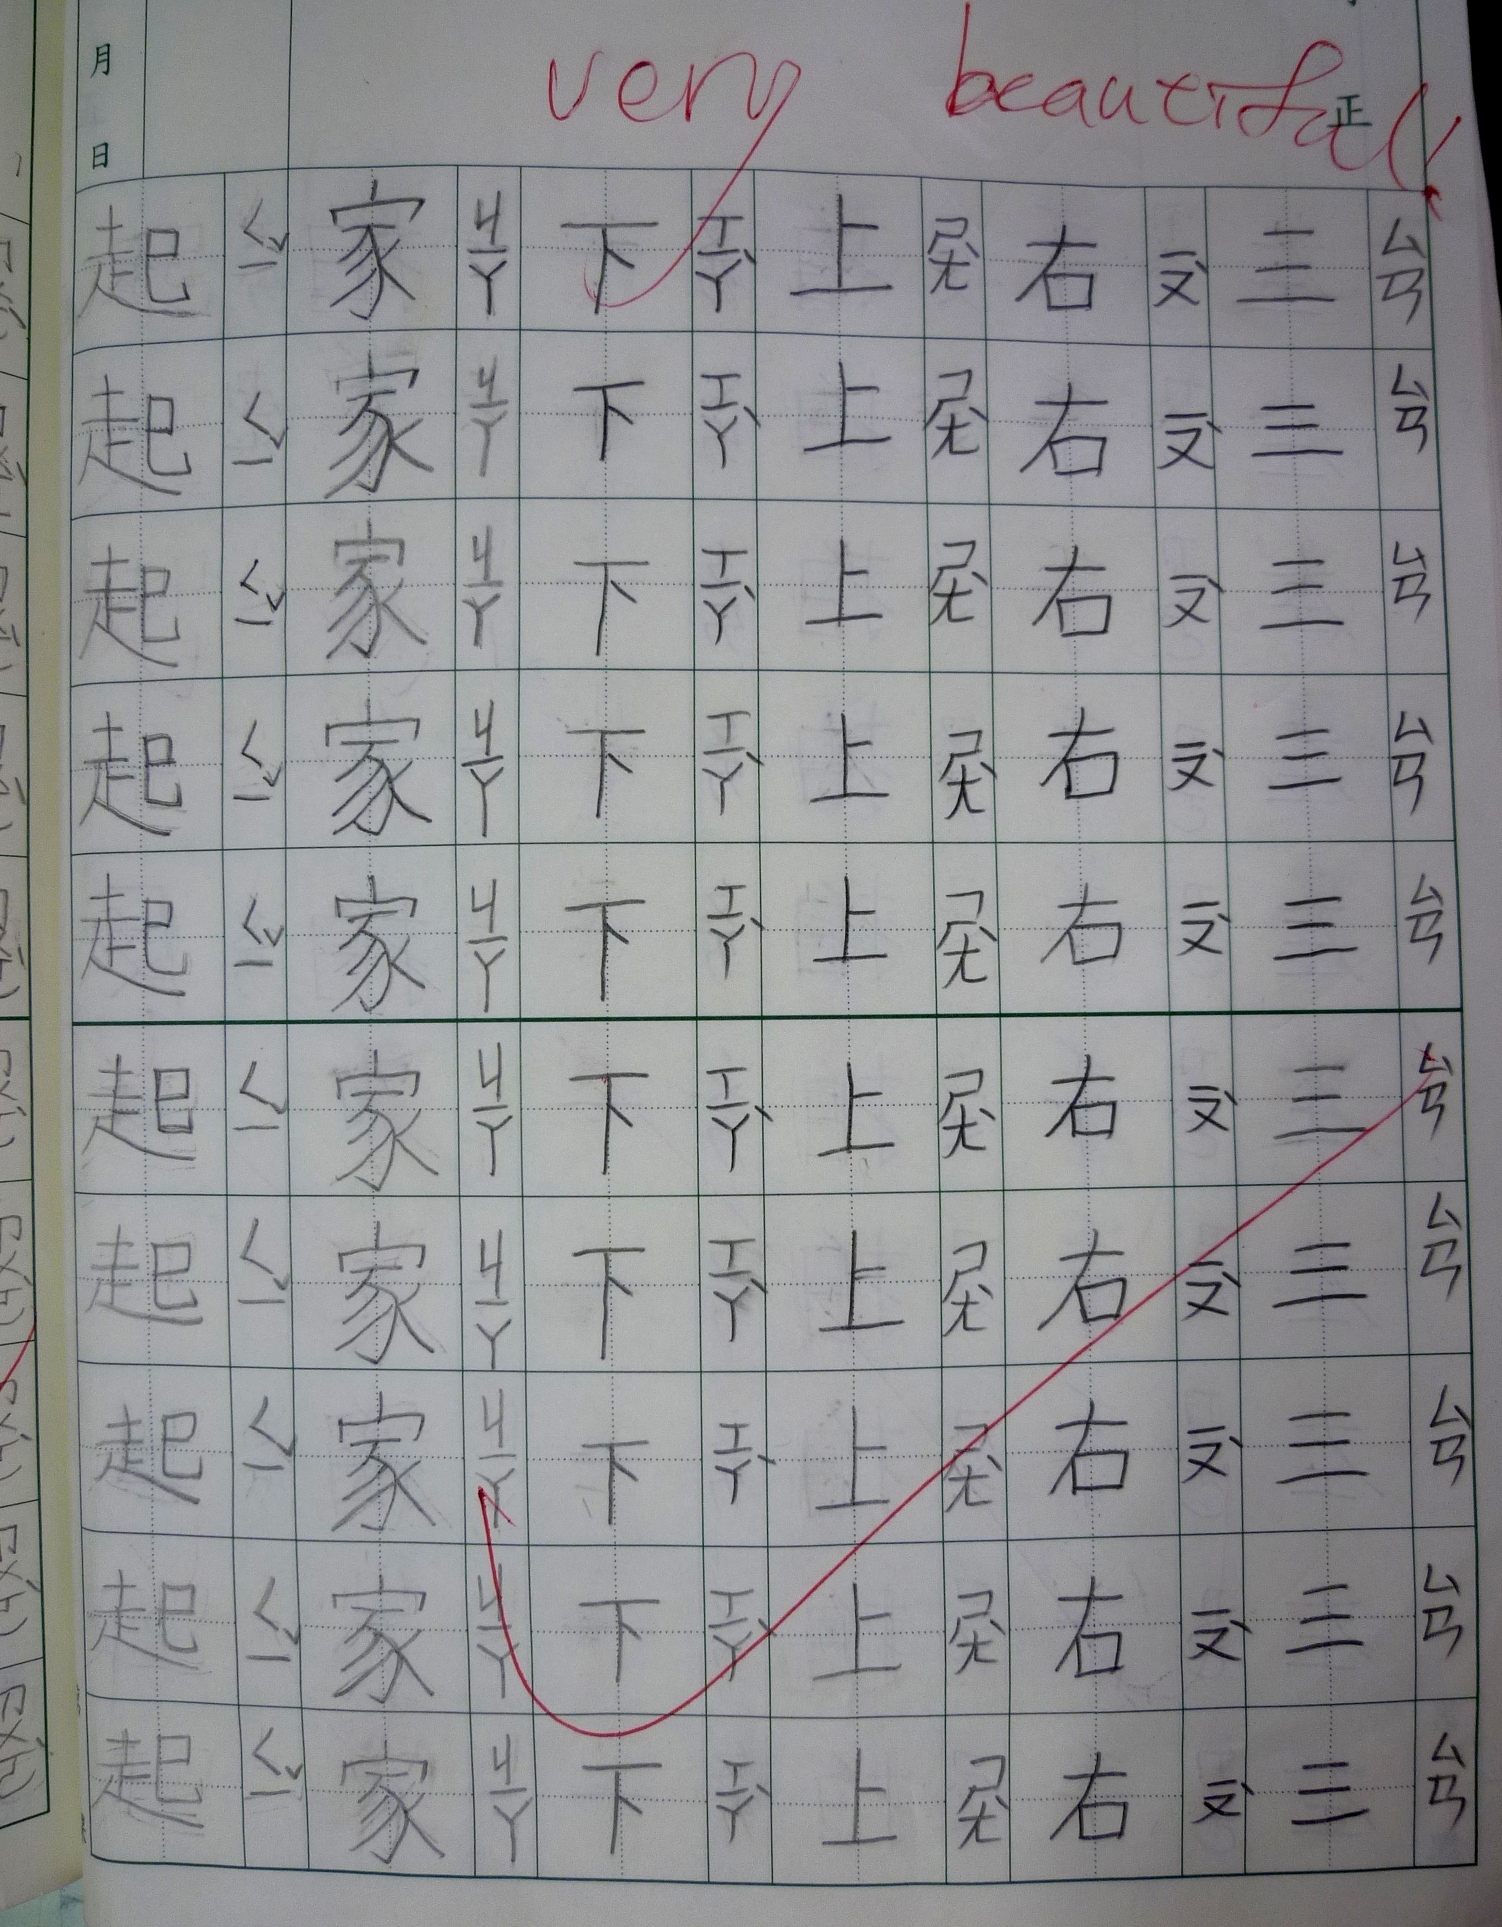 very beautiful!
正
三三三三三三三三三三
ㄙㄢ ㄙㄢ ㄙㄢ ㄙㄢ ㄙㄢ ㄙㄢ ㄙㄢ ㄙㄢ ㄙㄢ ㄙㄢ
右右右右右右右右右右
ㄧㄡˋ ㄧㄡˋ ㄧㄡˋ ㄧㄡˋ ㄧㄡˋ ㄧㄡˋ ㄧㄡˋ ㄧㄡˋ ㄧㄡˋ ㄧㄡˋ
上上上上上上上上上上
ㄕㄤˋ ㄕㄤˋ ㄕㄤˋ ㄕㄤˋ ㄕㄤˋ ㄕㄤˋ ㄕㄤˋ ㄕㄤˋ ㄕㄤˋ ㄕㄤˋ
下下下下下下下下下下
ㄒㄧㄚˋ ㄒㄧㄚˋ ㄒㄧㄚˋ ㄒㄧㄚˋ ㄒㄧㄚˋ ㄒㄧㄚˋ ㄒㄧㄚˋ ㄒㄧㄚˋ ㄒㄧㄚˋ ㄒㄧㄚˋ
家家家家家家家家家家
ㄐㄧㄚ ㄐㄧㄚ ㄐㄧㄚ ㄐㄧㄚ ㄐㄧㄚ ㄐㄧㄚ ㄐㄧㄚ ㄐㄧㄚ ㄐㄧㄚ ㄐㄧㄚ
起起起起起起起起起起
ㄑㄧˇ ㄑㄧˇ ㄑㄧˇ ㄑㄧˇ ㄑㄧˇ ㄑㄧˇ ㄑㄧˇ ㄑㄧˇ ㄑㄧˇ ㄑㄧˇ
月 日